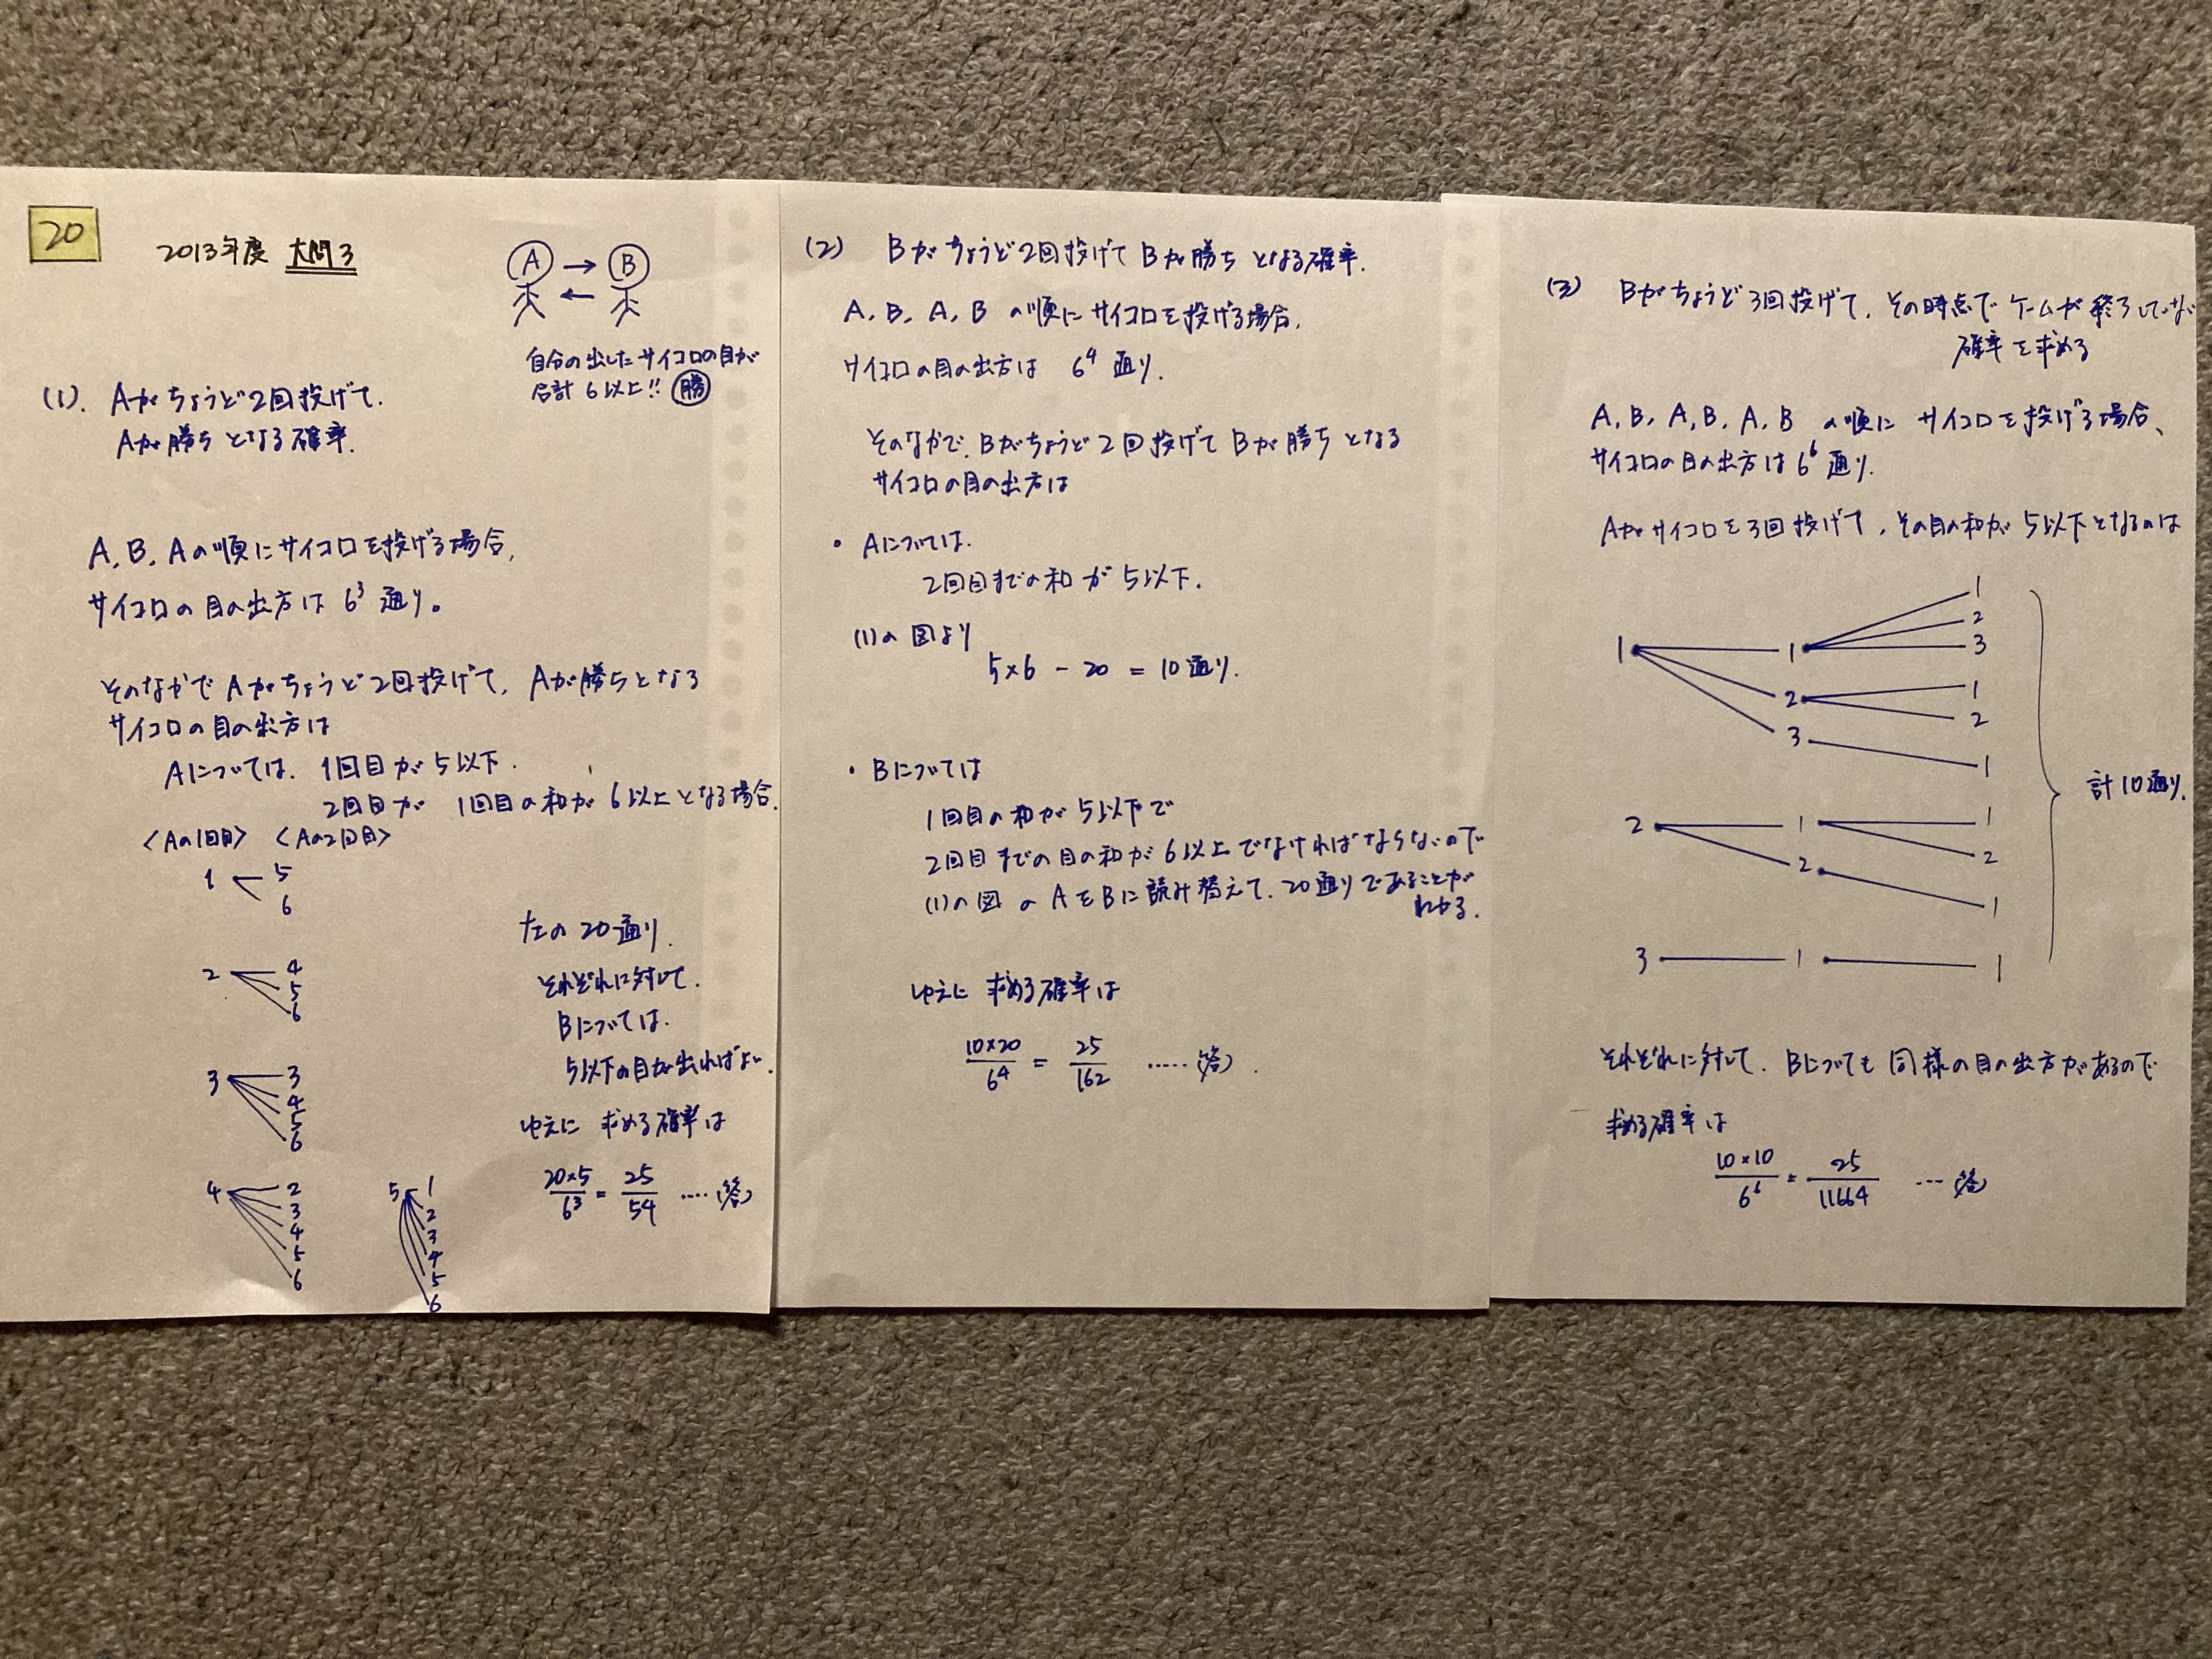 20
2013年度 大問3
A → B
←
自分の出したサイコロの目が
合計 6以上!! 勝
(1). Aがちょうど2回投げて.
Aが勝ちとなる確率.
A, B, Aの順にサイコロを投げる場合,
サイコロの目の出方は 6³ 通り。
そのなかで Aがちょうど2回投げて, Aが勝ちとなる
サイコロの目の出方は
Aについては. 1回目が 5以下.
2回目が 1回目の和が 6以上となる場合.
〈Aの1回目〉 〈Aの2回目〉
1 5
6
2 4
5
6
3 3
4
5
6
4 2
3
4
5
6
5 1
2
3
4
5
6
左の 20通り.
それぞれに対して.
Bについては.
5以下の目が出ればよい.
ゆえに 求める確率は
20×5/6³ = 25/54 ....(答)
(2) Bがちょうど2回投げて Bが勝ちとなる確率.
A, B, A, B の順にサイコロを投げる場合,
サイコロの目の出方は 6⁴ 通り.
そのなかで, Bがちょうど2回投げて Bが勝ちとなる
サイコロの目の出方は
・ Aについては.
2回目までの和が 5以下.
(1)の図より
5×6 - 20 = 10通り.
・ Bについては
1回目の和が 5以下で
2回目までの目の和が 6以上でなければならないので
(1)の図の AをBに読み替えて. 20通りであることが
わかる.
ゆえに 求める確率は
10×20/6⁴ = 25/162 .....(答).
(3) Bがちょうど3回投げて, その時点でゲームが終了していない
確率を求める
A, B, A, B, A, B の順に サイコロを投げる場合、
サイコロの目の出方は 6⁶ 通り.
Aがサイコロを3回投げて, その目の和が 5以下となるのは
1 1 1
2
3
2 1
2
3 1
2 1 1
2
2 1
3 1 1
計10通り.
それぞれに対して. Bについても 同様の目の出方があるので
求める確率は
10×10/6⁶ = 25/11664 ...(答)